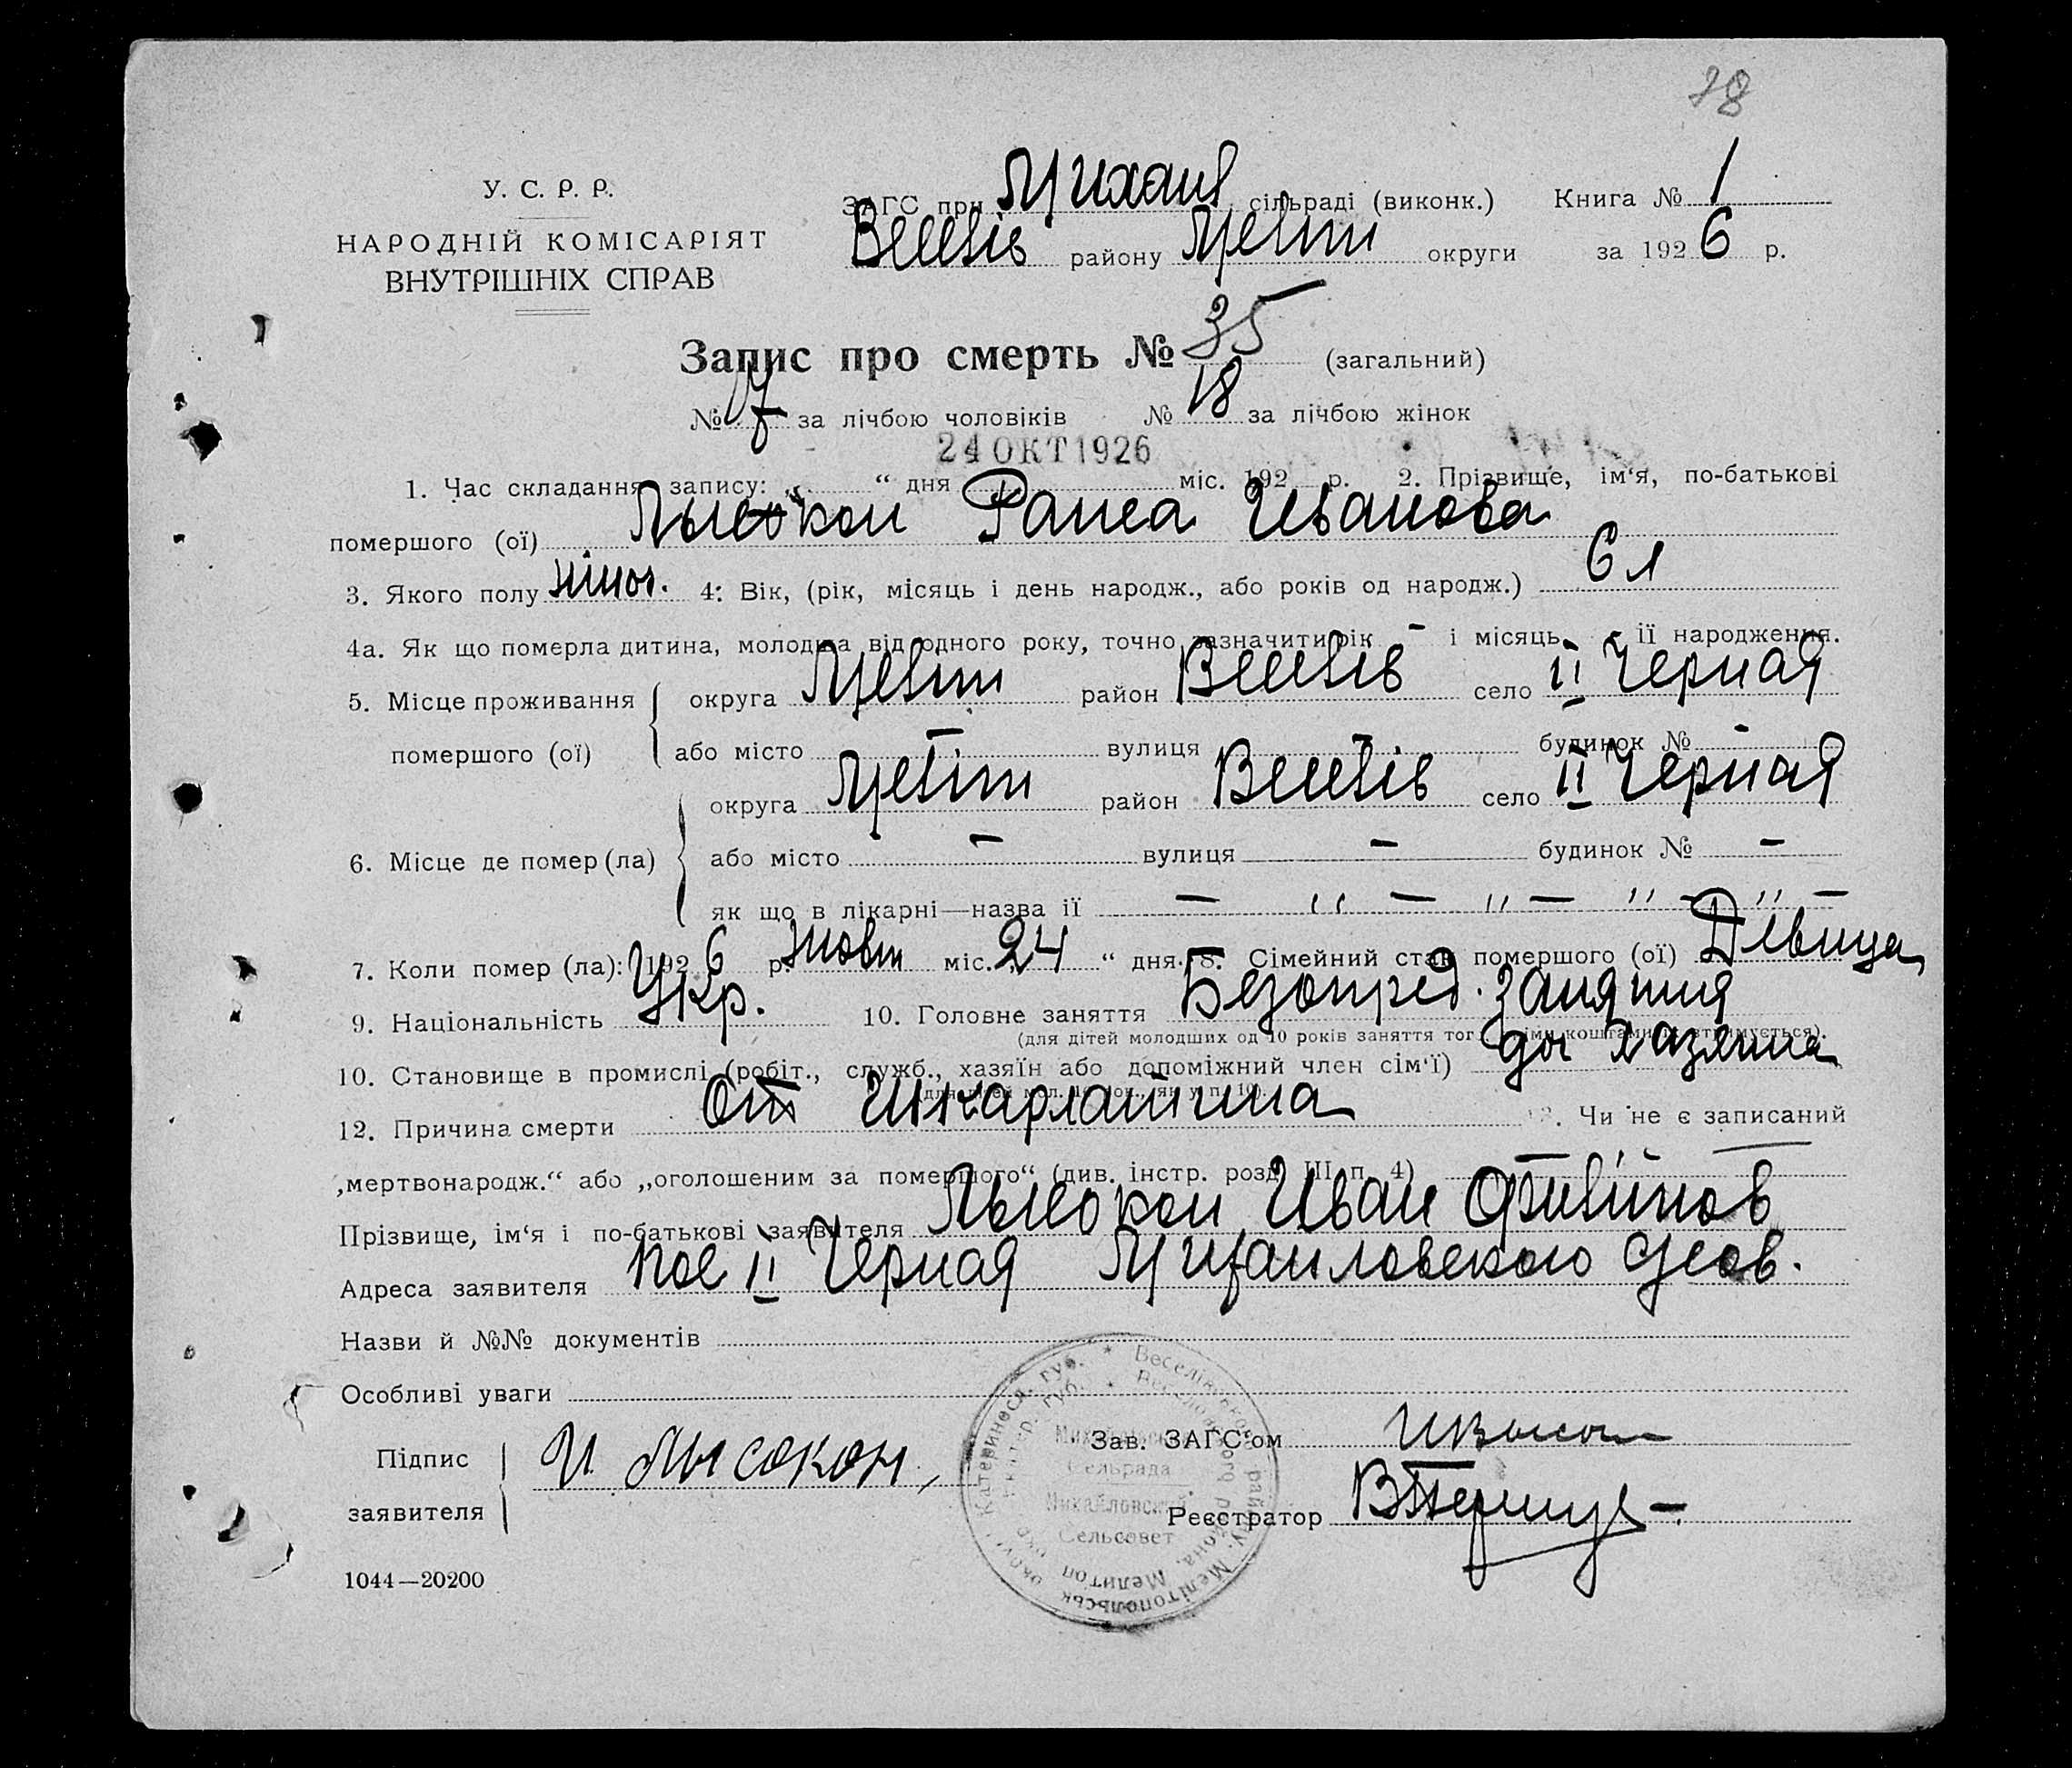 28
У. С. Р. Р.
НАРОДНІЙ КОМІСАРІЯТ
ВНУТРІШНІХ СПРАВ
ЗАГС при Михайл сільраді (виконк.) Книга № 1
Веселів району Меліт округи за 1926 р.
Запис про смерть № 35 (загальний)
№ 17 за лічбою чоловіків № 18 за лічбою жінок
24 ОКТ 1926
1. Час складання запису: „ “ дня міс. 192 р. 2. Прізвище, ім‘я, по-батькові
помершого (ої) Лысокон Раиса Иванова
3. Якого полу жіноч. 4: Вік, (рік, місяць і день народж., або років од народж.) 6 л
4а. Як що померла дитина, молодша від одного року, точно зазначити рік - і місяць - ії народження.
5. Місце проживання округа Меліт район Веселів село ІІ Черная
помершого (ої) або місто - вулиця - будинок № -
округа Меліт район Веселів село ІІ Черная
6. Місце де помер (ла) або місто - вулиця - будинок № -
як що в лікарні—назва ії — „ — „ — „ — „ —
7. Коли помер (ла): 1926 р. жовт міс. 24 “ дня. 8. Сімейний стан помершого (ої) Девица
9. Національність Укр. 10. Головне заняття Безопред. занятия
(для дітей молодших од 10 років заняття того, чіїми коштами їх утримується).
10. Становище в промислі (робіт., служб., хазяїн або допоміжний член сім‘ї) хазяина
12. Причина смерти От шкарлатина 13. Чи не є записаний
„мертвонародж.“ або „оголошеним за помершого“ (див. інстр. розд. ІІІ п. 4) —
Прізвище, ім‘я і по-батькові заявителя Лысокон Иван
Адреса заявителя пос ІІ Черная Михайловского
Назви й №№ документів
Особливі уваги
Підпис
заявителя И Лысокон
Зав. ЗАГС‘ом
Реєстратор
Катеринося. губ. * Веселівського району. Мелітопольськ. округ
Михайлівська
Сельрада
Михайловский
Сельсовет
1044—20200